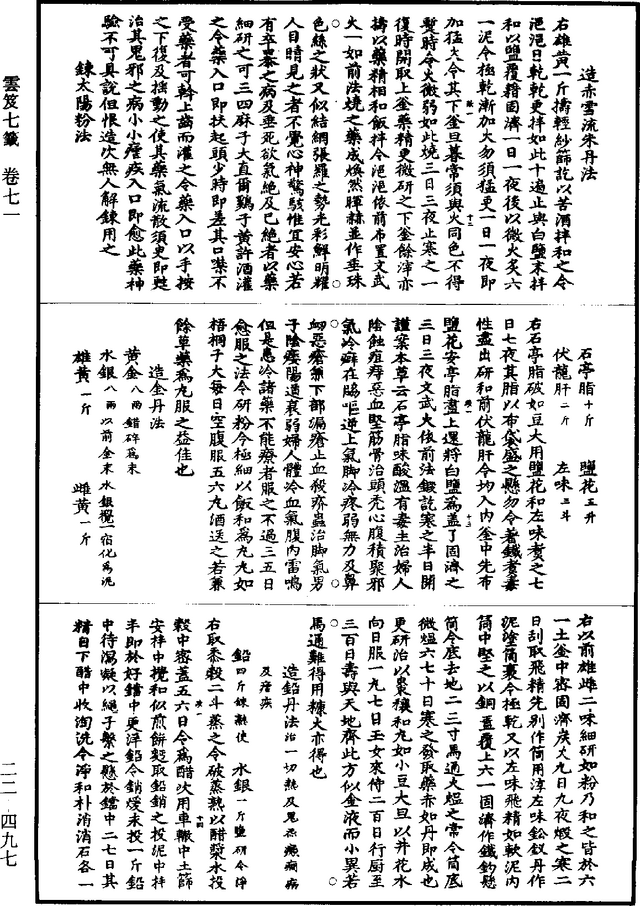 造赤雪流朱丹法
右雄黃一斤擣輕紗篩訖以苦酒拌和之令
浥浥日乾乾更拌如此十遍止與白鹽末拌
和以鹽覆藉固濟一日一夜後以微火炙六
一泥令極乾漸加火勿須猛更一日一夜即
加猛火令其下釜旦暮常須與火同色不得
暫時令火微弱如此燒三日三夜止寒之一
復時開取上釜藥精更微研之下釜餘滓亦
擣以藥精相和飯拌令浥浥依前布置文武
火一如前法燒之藥成煥然暉赫並作垂珠
色絲之狀又似結網張羅之勢光彩鮮明耀
人目睛見之者不覺心神驚駭惟宜安心若
有卒暴之病及垂死欲氣絕及已絕者以藥
細研之可三四麻子大直爾鷄子黃許酒灌
之令藥入口即扶起頭少時即差其口噤不
受藥者可斡上齒而灌之令藥入口以手按
之下復及搖動之使其藥氣流散須臾即甦
治其鬼邪之病小小瘧疾入口即愈此藥神
驗不可具說但恨造次無人解鍊用之
鍊太陽粉法
石亭脂十斤　鹽花五升
伏龍肝二斤　左味三斗
右石亭脂破如豆大用鹽花和左味煑之七
日七夜其脂以布袋盛之懸勿令著鐵煑毒
性盡出研和前伏龍肝令均入內釜中先布
鹽花安亭脂盡上還將白鹽為蓋了固濟之
三日三夜文武火依前法鍛訖寒之半日開
謹案本草云石亭脂味酸溫有毒主治婦人
陰蝕疽痔惡血堅筋骨治頭禿心腹積聚邪
氣冷癖在脇嘔逆上氣腳冷疼弱無力及鼻
衂惡瘡無下部漏瘡止血殺疥蟲治腳氣男
子陰痿陽道衰弱婦人體冷血氣腹內雷鳴
但是患冷諸藥不能療者服之不過三五日
愈服之法令研粉令極細以飯和為丸丸如
梧桐子大每日空腹服五六丸酒送之若兼
餘草藥為丸服之益佳也
造金丹法
黃金八兩錯碎為末
水銀八兩以前金末水銀攪一宿化為泥
雄黃一斤　雌黃一斤
右以前雄雌二味細研如粉乃和之皆於六
一土釜中密固濟炭火九日九夜煅之寒二
日刮取飛精先別作筒用淳左味鈆釵丹作
泥塗筒裹令極乾又以左味飛精如軟泥內
筒中堅之以銅蓋覆上六一固濟作鐵鈎懸
筒令底去地二三寸馬通火煴之常令筒底
微煴六七十日寒之發取藥赤如丹即成也
更研治以棗穰和丸如小豆大旦以井花水
向日服一丸七日玉女來侍二百日行廚至
三百日壽與天地齊此方似金液而小異若
馬通難得用糠火亦得也
造鉛丹法治一切熱及鬼𤶸癲癇病
及瘧疾
鉛四斤鍊熟使　水銀一斤鹽研令淨
右取黍穀二斗蒸之令破蒸熟以醋漿水投
穀中密蓋五六日令為醋次用車轍中土篩
安枰中攪和似煎餅麪取鉛銷之投泥中枰
半即於好鐺中更洋鉛令銷煖末投一斤鉛
中待瀉凝以繩子繫之懸於鐺中二七日其
精自下醋中收洵洗令淨和朴消消石各一
雲笈七籤　卷七一
二二－四九七